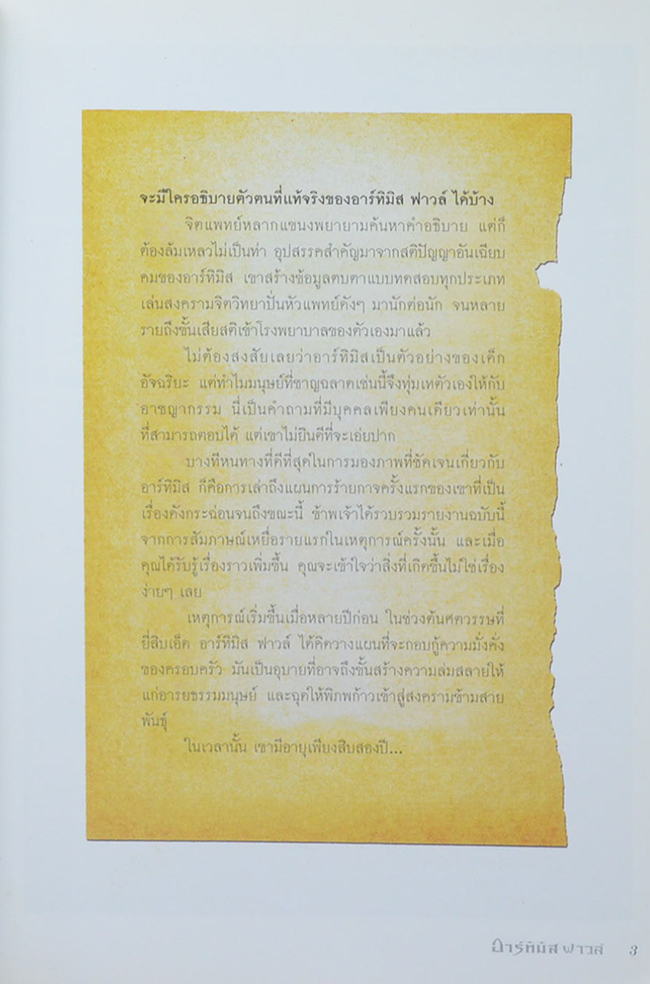 จะมีใครอธิบายตัวตนที่แท้จริงของอาร์ทิมิส ฟาวล์ ได้บ้าง
จิตแพทย์หลากแขนงพยายามค้นหาคำอธิบาย แต่ก็
ต้องล้มเหลวไม่เป็นท่า อุปสรรคสำคัญมาจากสติปัญญาอันเฉียบ
คมของอาร์ทิมิส เขาสร้างข้อมูลตบตาแบบทดสอบทุกประเภท
เล่นสงครามจิตวิทยาปั่นหัวแพทย์ดังๆ มานักต่อนัก จนหลาย
รายถึงขั้นเสียสติเข้าโรงพยาบาลของตัวเองมาแล้ว
ไม่ต้องสงสัยเลยว่าอาร์ทิมิสเป็นตัวอย่างของเด็ก
อัจฉริยะ แต่ทำไมมนุษย์ที่ชาญฉลาดเช่นนี้จึงทุ่มเทตัวเองให้กับ
อาชญากรรม นี่เป็นคำถามที่มีบุคคลเพียงคนเดียวเท่านั้น
ที่สามารถตอบได้ แต่เขาไม่ยินดีที่จะเอ่ยปาก
บางทีหนทางที่ดีที่สุดในการมองภาพที่ชัดเจนเกี่ยวกับ
อาร์ทิมิส ก็คือการเล่าถึงแผนการร้ายกาจครั้งแรกของเขาที่เป็น
เรื่องดังกระฉ่อนจนถึงขณะนี้ ข้าพเจ้าได้รวบรวมรายงานฉบับนี้
จากการสัมภาษณ์เหยื่อรายแรกในเหตุการณ์ครั้งนั้น และเมื่อ
คุณได้รับรู้เรื่องราวเพิ่มขึ้น คุณจะเข้าใจว่าสิ่งที่เกิดขึ้นไม่ใช่เรื่อง
ง่ายๆ เลย
เหตุการณ์เริ่มขึ้นเมื่อหลายปีก่อน ในช่วงต้นศตวรรษที่
ยี่สิบเอ็ด อาร์ทิมิส ฟาวล์ ได้คิดวางแผนที่จะกอบกู้ความมั่งคั่ง
ของครอบครัว มันเป็นอุบายที่อาจถึงขั้นสร้างความล่มสลายให้
แก่อารยธรรมมนุษย์ และฉุดให้พิภพก้าวเข้าสู่สงครามข้ามสาย
พันธุ์
ในเวลานั้น เขามีอายุเพียงสิบสองปี...
อาร์ทิมิส ฟาวล์ 3